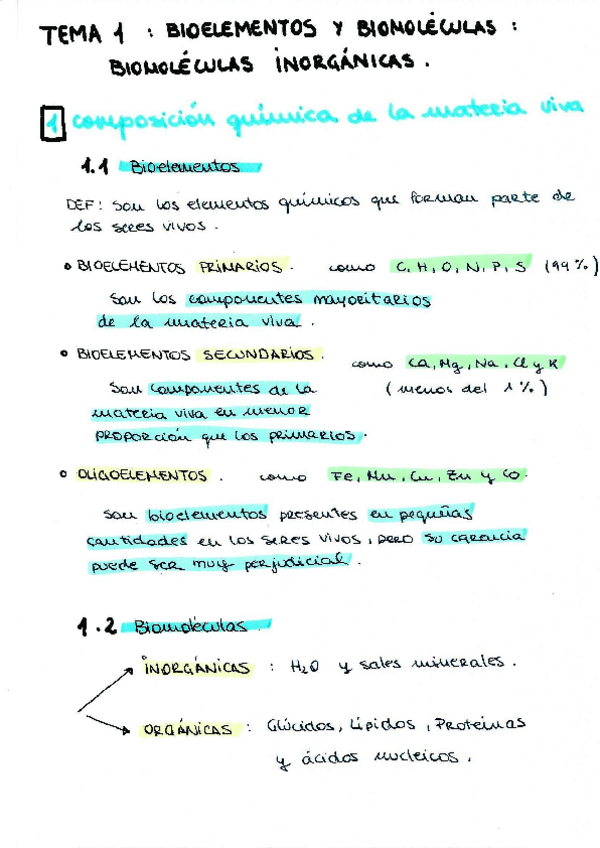 TEMA 1 : BIOELEMENTOS Y BIOMOLÉCULAS :
BIOMOLÉCULAS INORGÁNICAS.
1 composición química de la materia viva
1.1 Bioelementos
DEF: Son los elementos químicos que forman parte de
los seres vivos.
• BIOELEMENTOS PRIMARIOS. como C, H, O, N, P, S (99%)
Son los componentes mayoritarios
de la materia viva.
• BIOELEMENTOS SECUNDARIOS. como Ca, Mg, Na, Cl y K
Son componentes de la (menos del 1%)
materia viva en menor
proporción que los primarios.
• OLIGOELEMENTOS. como Fe, Mn, Cu, Zn y Co.
Son bioelementos presentes en pequeñas
cantidades en los seres vivos, pero su carencia
puede ser muy perjudicial.
1.2 Biomoléculas.
INORGÁNICAS : H₂O y sales minerales.
ORGÁNICAS : Glúcidos, Lípidos, Proteínas
y ácidos nucleicos.